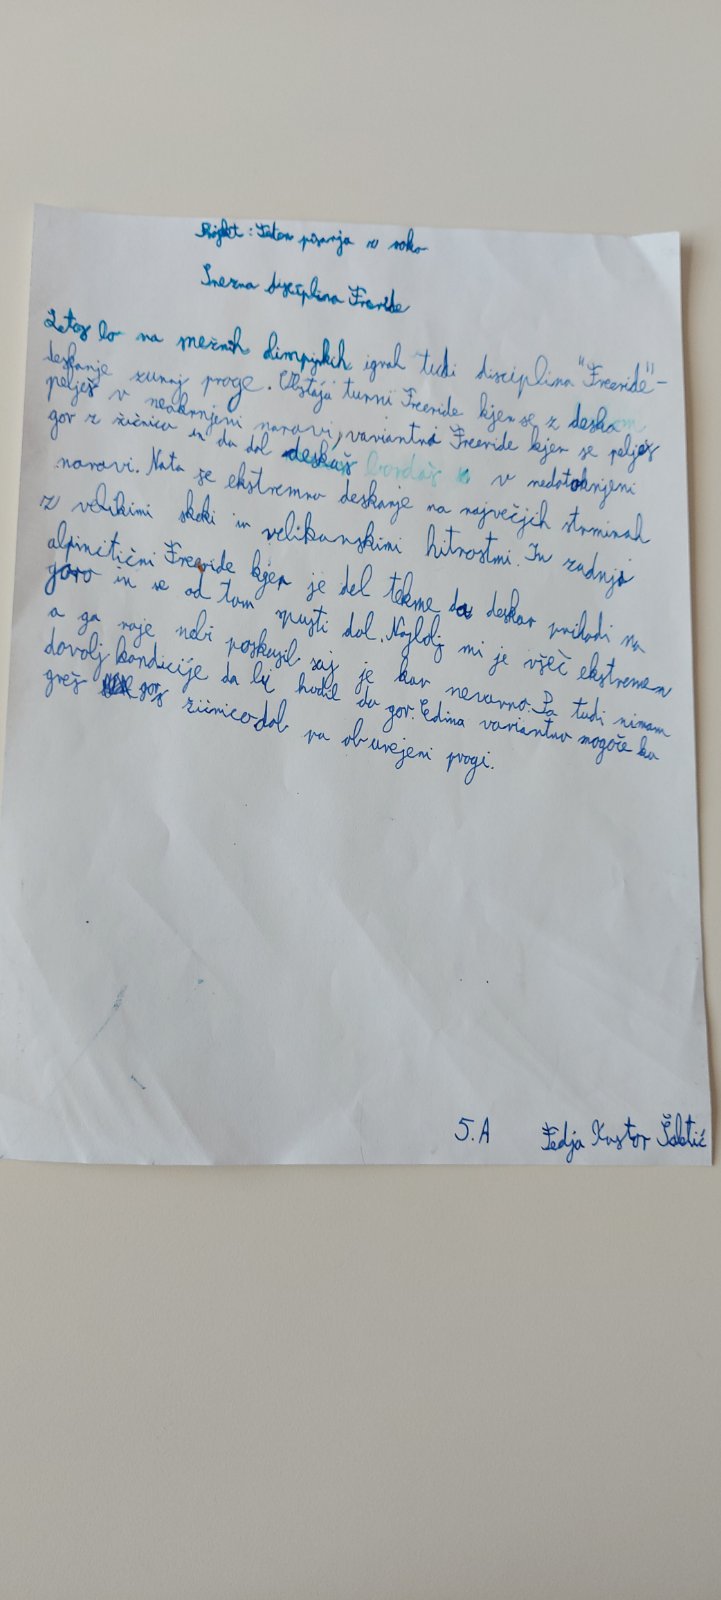 Projekt: Teden pisanja z roko
Snežna disciplina Freeride
Letos bo na snežnih olimpijskih igrah tudi disciplina "Freeride" -
deskanje zunaj proge. Obstaja turni Freeride kjer se z deskam
pelješ v neokrnjeni naravi, variantni Freeride kjer se pelješ
gor z žičnico in da dol deskaš bordaš v nedotaknjeni
naravi. Nata se ekstremno deskanje na največjih strminah
z velikimi skoki in velikanskimi hitrostmi. In zadnji
alpinitični Freeride kjer je del tekme da deskar prihodi na
goro in se od tam spusti dol. Najbolj mi je všeč ekstremen
a ga raje nebi poskusil saj je kar nevarno. Pa tudi nimam
dovolj kondicije da bi hodil do gor. Edina varianta mogoče ko
greš gor z žičnico dol pa ob urejeni progi.
5.A Fedja Kastor Šaletić